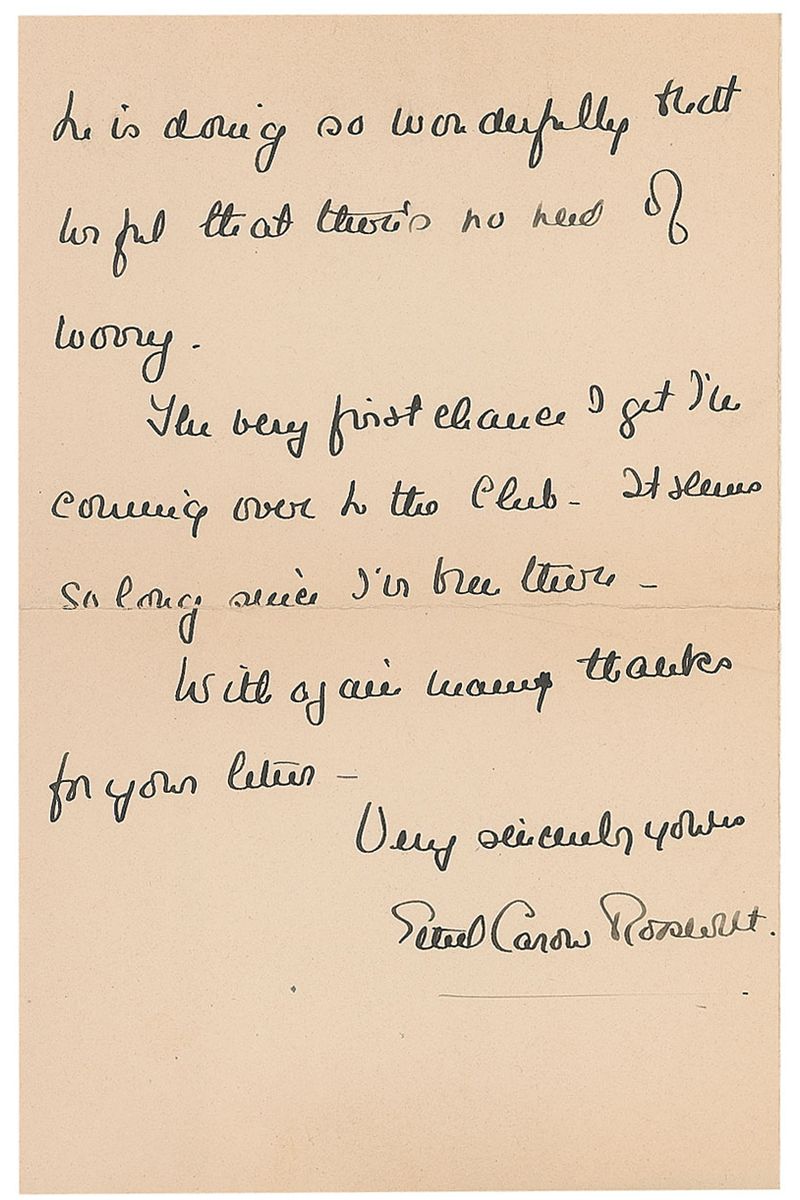 he is doing so wonderfully that
we feel that there's no need of
worry.
The very first chance I get I'm
coming over to the Club - It seems
so long since I've been there -
With again many thanks
for your letter -
Very sincerely yours
Ethel Carow Roosevelt.